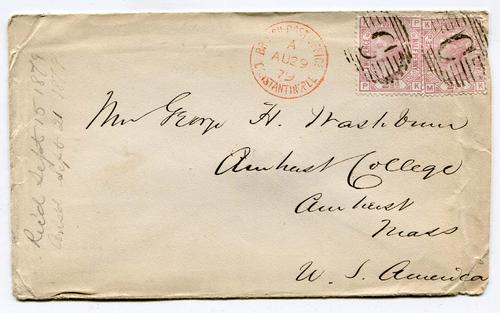 BRITISH POST OFFICE
A
AU 29
79
CONSTANTINOPLE
C
C
P K
M K
Mr George H. Washburn
Amherst College
Amherst
Mass
U. S. America
Rec'd Sept 15 1879
Ansd Sept 21 1879